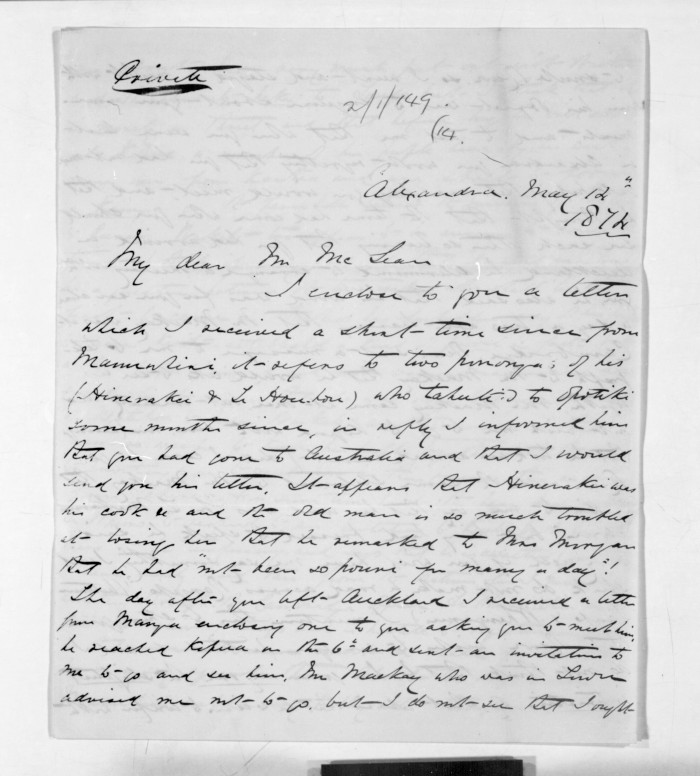 Private
2/1/149.
(14.
Alexandra. May 12th
1874
My dear Mr McLean
I enclose to you a letter
which I received a short time since from
Manuhiri, it refers to two pononga's of his
(Hinerakei & Te Hourua) who tahuti'd to Opotiki
some months since, in reply I informed him
that you had gone to Australia and that I would
send you his letter. It appears that Hinerakei was
his cook and the old man is so much troubled
at losing her that he remarked to Mrs Morgan
that he had "not been so pouri for many a day"!
The day after you left Auckland I received a letter
from Manga enclosing one to you asking you to meet him,
he reached Kopua on the 6th and sent an invitation to
me to go and see him. Mr Mackay who was in Town
advised me not to go. but I do not see that I ought